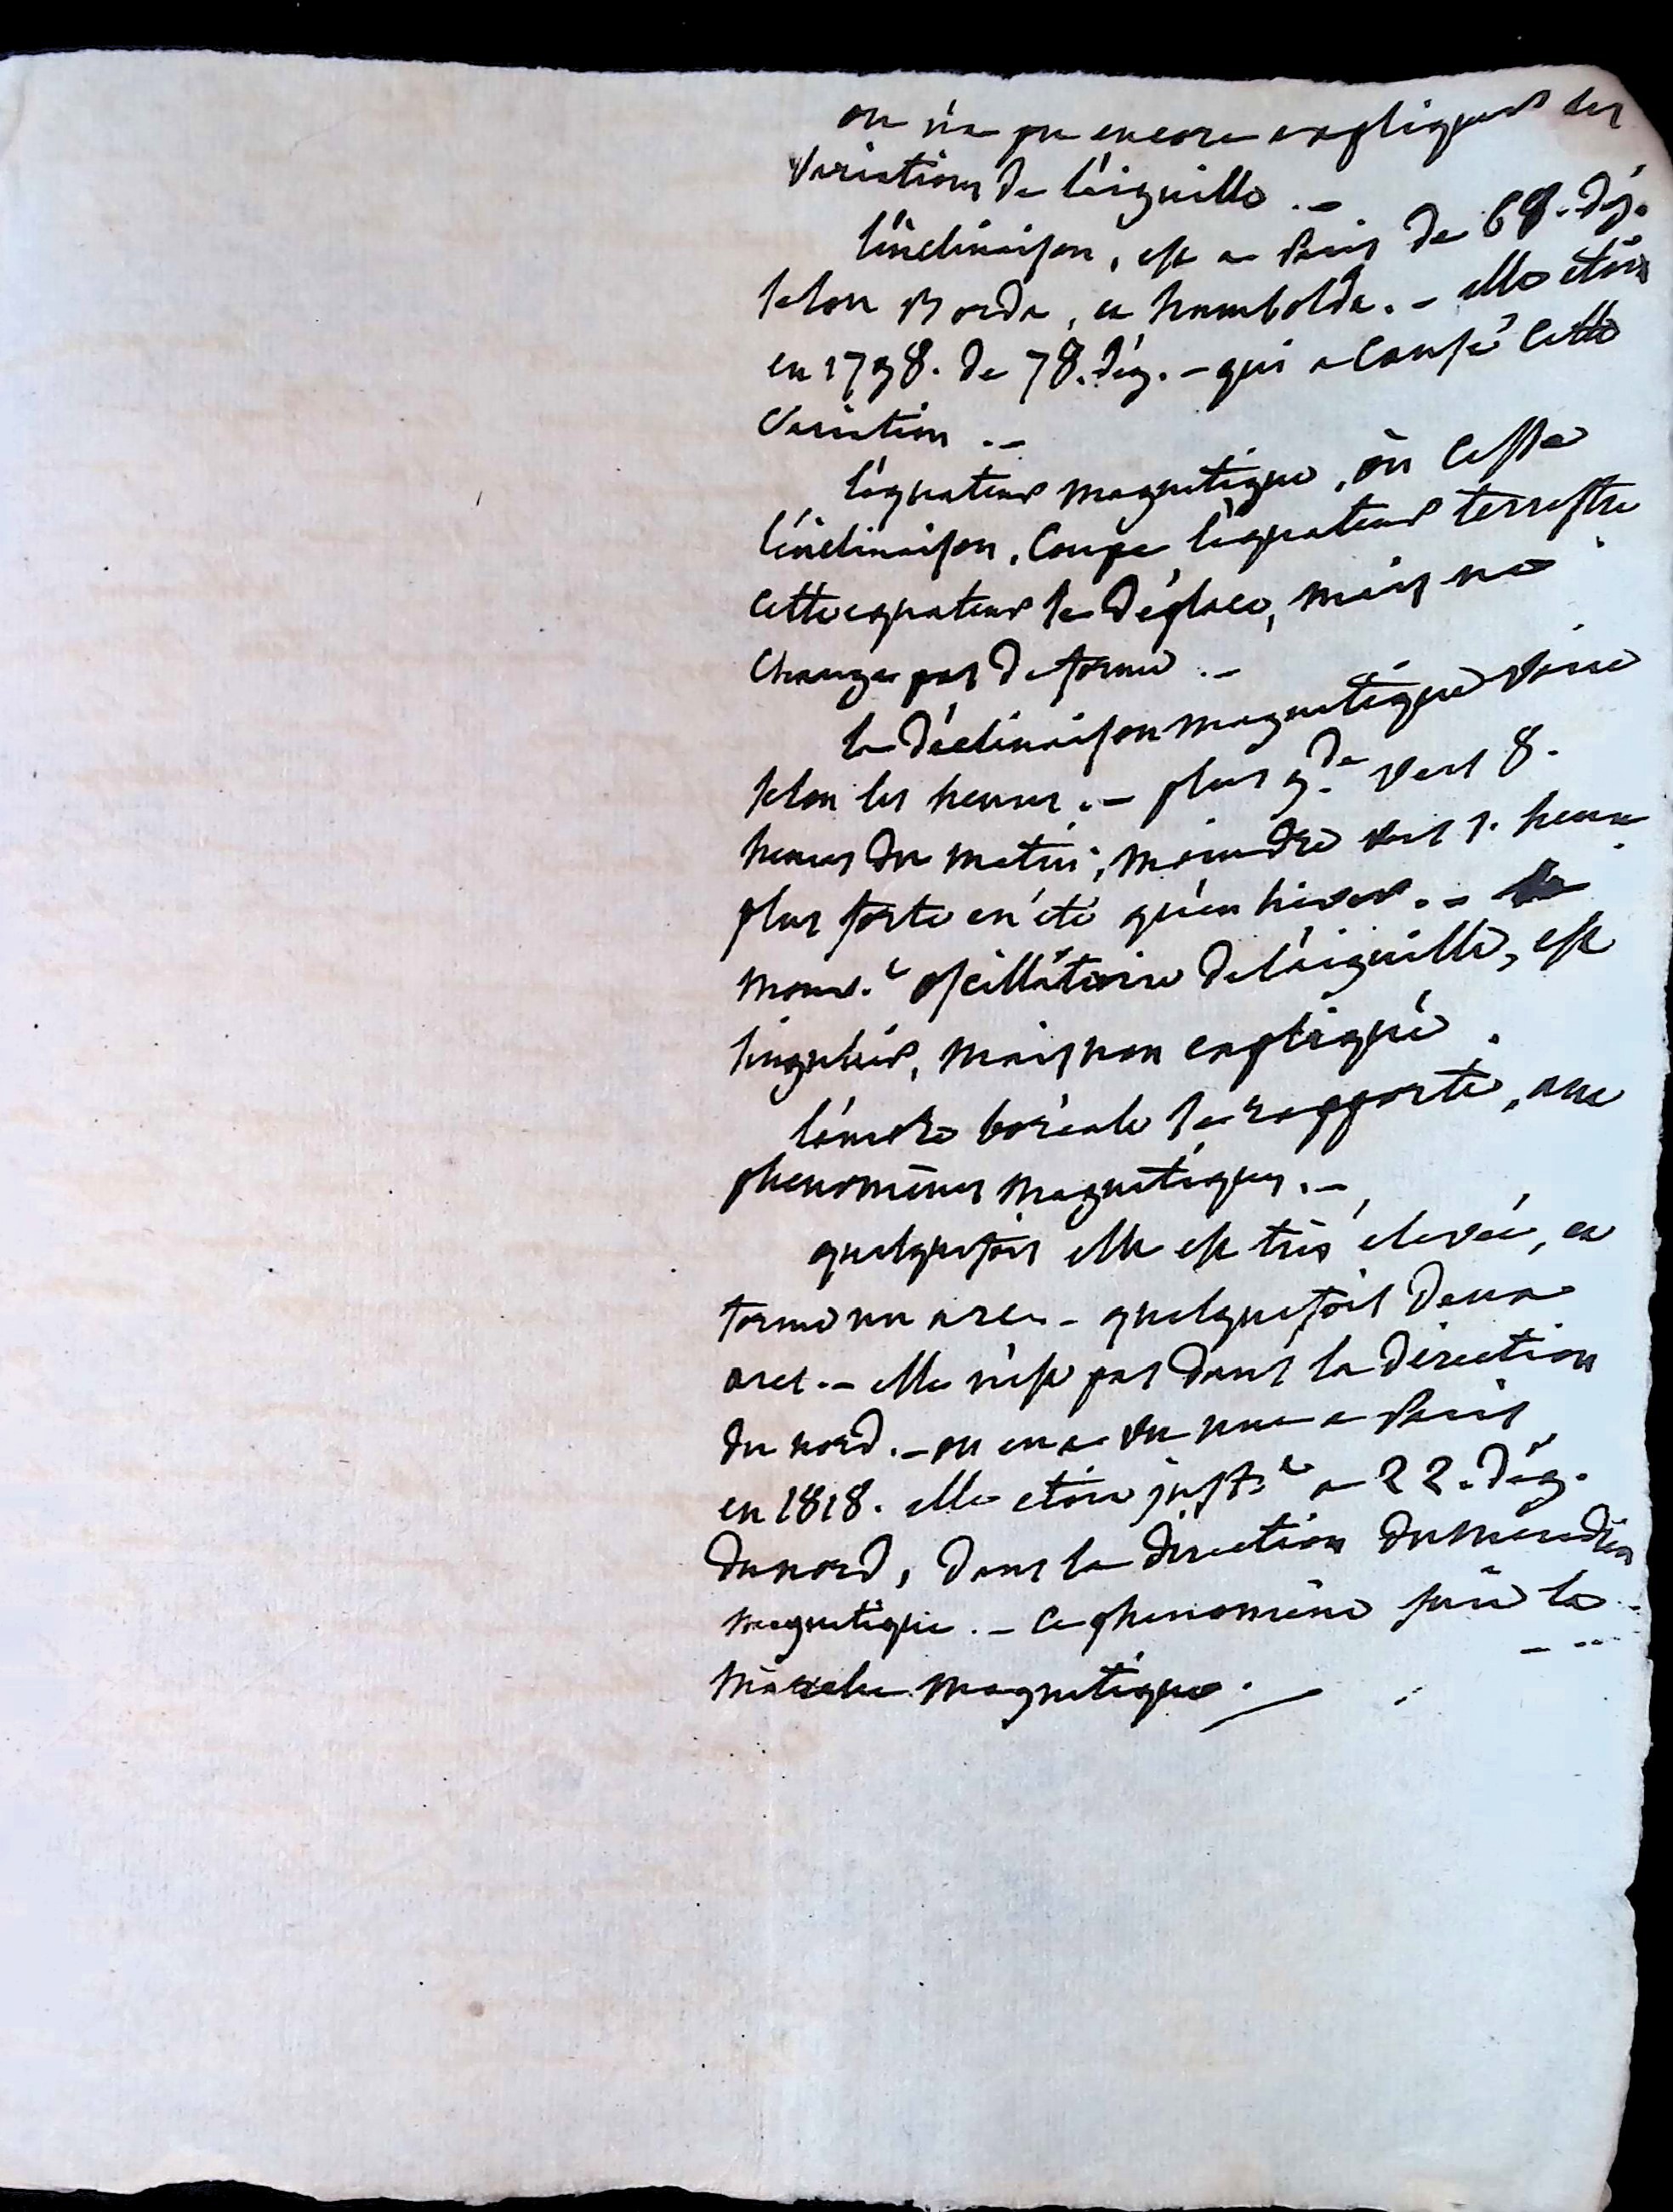 on n'a pu encore expliquer les
variations de l'aiguille. –
l'inclinaison, est a Paris de 68. dég.
selon Borda, et humboldt. – elle étoit
en 1798. de 78. dég. – qui a causé cette
variation. –
l'équateur magnetique, où cesse
l'inclinaison, coupe l'équateur terrestre
cette equateur se déplace, mais ne
change pas de forme. –
la déclinaison magnetique varie
selon les heures. – plus g.de vers 8.
heures du matin, moindre vers 1. heure
plus forte en été qu'en hiver. –
mouv.t oscillatoire de l'aiguille, est
singulier, mais non expliqué.
l'aurore boréale se rapporte, aux
phenomènes magnetiques. –
quelquefois elle est très élevée, et
forme un arc. – quelquefois deux
arcs. – elle n'est pas dans la direction
du nord. – on en a vu une a Paris
en 1818. elle etoit just.t a 22. dég.
du nord, dans la direction du meridien
magnetique. – ce phenomène suit la
marche magnetique. –